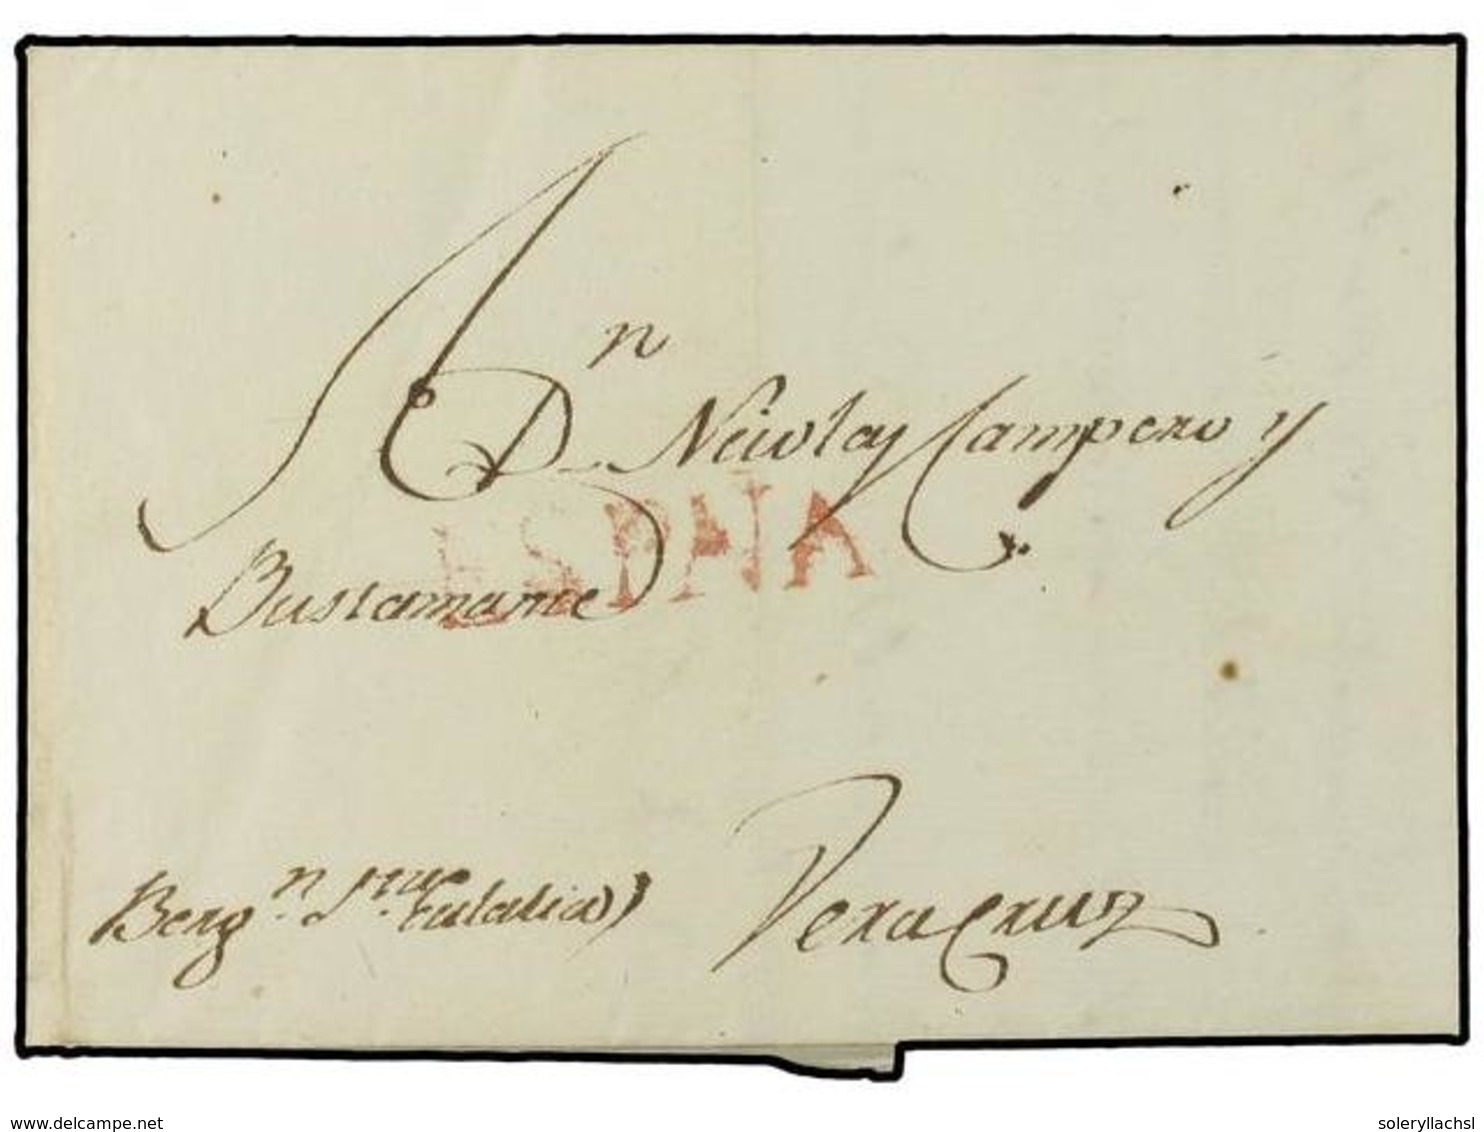 A
Dn. Nicolay Campero y
ESPNA
Bustamante
Bergn. Sta. Eulalia)
Vera Cruz
www.delcampe.net
soleryllachsl